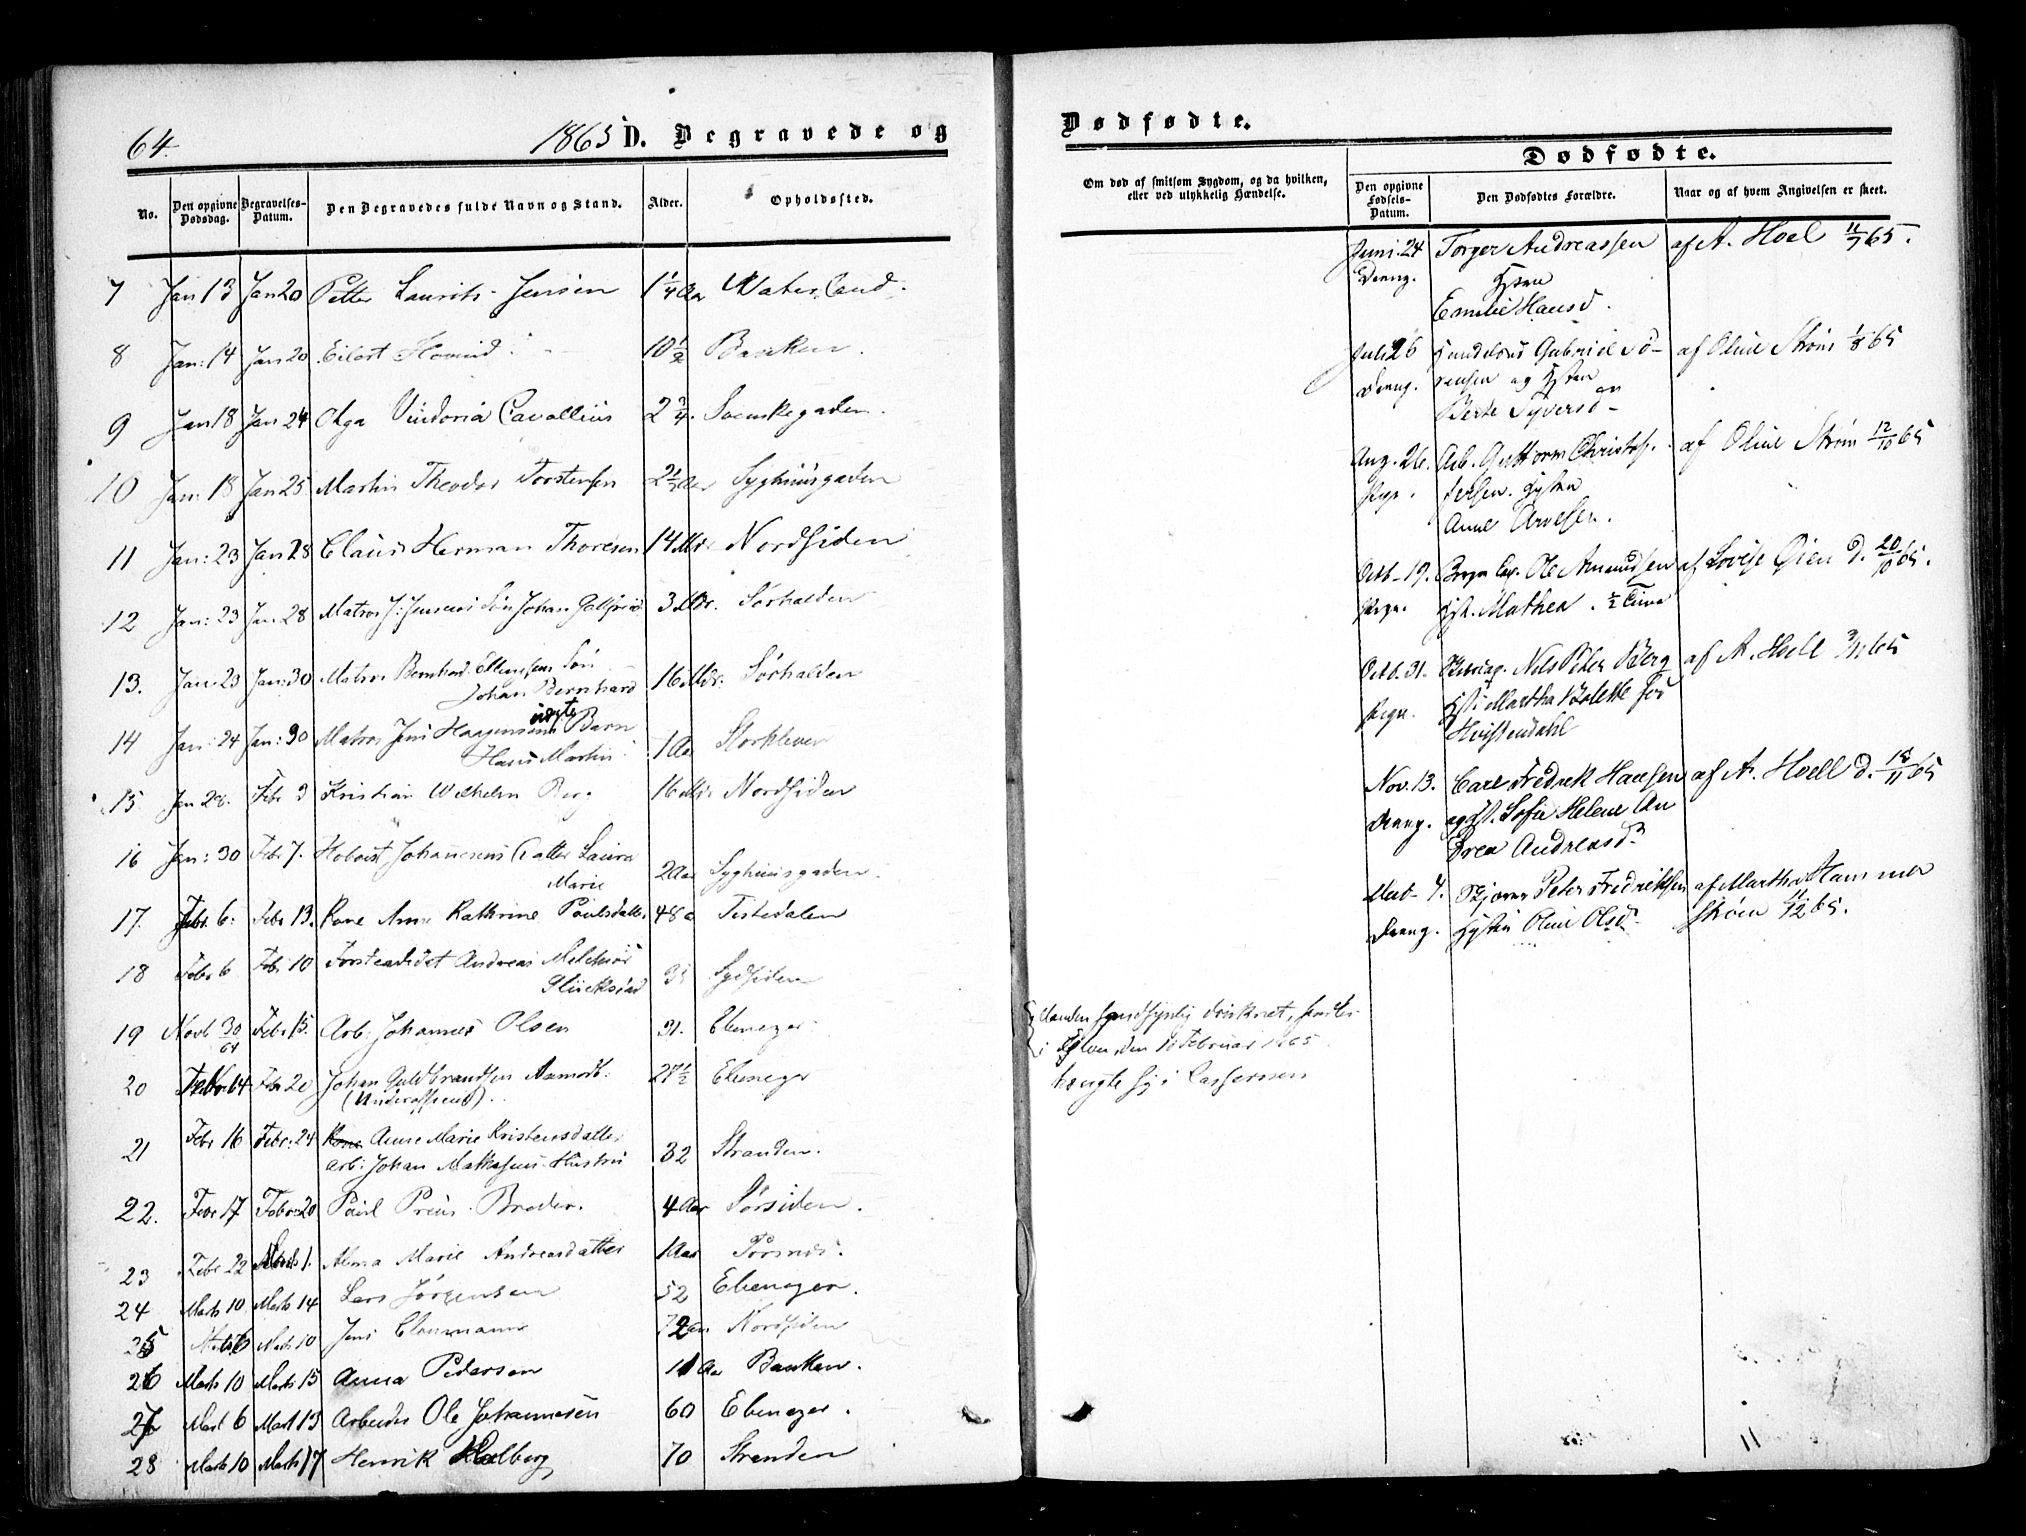 64.
1865 D. Begravede og
No.
Den opgivne Dødsdag.
Begravelses-Datum.
Den Begravedes fulde Navn og Stand.
Alder.
Opholdssted.
7 Jan 13 Jan 20 Petter Laurits Jensen 1 1/4 Aar Waterland.
8 Jan: 14 Jan 20 Eilert 10 1/2 Banken.
9 Jan 18 Jan 24 Olga Cavallius 2 3/4. Svenskegaden.
10 Jan: 18 Jan 25 Martin Theodor Torstensen 2 1/2 Aar Syghuusgaden
11 Jan: 23 Jan 28 Claus Herman Thoresen 14 Mdr. Nordsiden
12 Jan: 23 Jan 28 Matros J: Jensens Søn Johan 3 Mdr. Sørhalden
13. Jan: 23 Jan: 30 Matros Bernhard Ellingsens Søn
Johan Bernhard 16 Mdr. Sørhalden
14 Jan: 24 Jan: 30 Matros Jens Haagensens uægte Barn
Hans Martin 1 Aar Storkleven
15 Jan 28. Febr 3 Kristian Wilhelm Berg 16 Mdr. Nordsiden
16 Jan: 30 Febr 7. Johannesens Datter Laura
Marie 2 Aar Syghuusgaden.
17. Febr 6: Febr 13. Kone Anne Kathrine Poulsdatter 48 Tistedalen
18 Febr 6 Febr 10 Forstcandidat Andreas Melchior
Glückstad 31 Sydsiden
19 Novb 30/64 Febr 15. Arb: Johannes Olsen 31. Ebenezer.
20 Febr 14 Febr 20 Johan Guldbrandsen Aamodt.
(Underofficeer). 27 1/2 Ebenezer
21 Febr 16 Febr. 24 Kone Anne Marie Kristensdatter
Arb: Johan Mathisens Hustru 32 Stranden.
22. Febr 17 Febr 20 Paul Preus Broder. 4 Aar Sørsiden.
23 Febr 22 Marts 1. Alma Marie Andreasdatter 1 Aar Torsnes.
24 Marts 10 Marts 14 Lars Jørgensen 52 Ebenezer.
25 Marts 6 Marts 10 Jens Nordsiden
26 Marts 10 Marts 15 Anna Pedersen Aar Banken.
27 Mart 6 Mart 13 Arbeider Ole Johannesen 60 Ebenezer.
28 Marts 10 Marts 17 Henrik Holberg 70 Stranden
Dødfødte.
Om død af smitsom Sygdom, og da hvilken,
eller ved ulykkelig Hændelse.
Manden sandsynlig druknet, fandtes
i Elven den 10 Februar 1865.
hængte sig i Cassernen
Dødfødte.
Den opgivne Fødsels-Datum.
Den Dødfødtes Forældre.
Naar og af hvem Angivelsen er skeet.
Juni. 24 Torger Andreassen af A. Hoel 11/7 65.
Dreng. Hustru
Emilie Hansd.
Juli 26 Gabriel Sø- af Oline Strøm 1/8 65
Dreng. rensen og Hustru
Berte Syversd
Aug. 26. Arb. Guttorm Christof- af Oline Strøm 12/10 65
Pige. fersen. Hustru
Anne Arvesen.
Octb - 19. Ole Amundsen af Lovise Øien d. 20/10 65.
Pige. Hust. Mathea.
Octb. 31. Nils Peter Berg af A. Hoell 3/11 65
Pige. Hust. Martha Bolette før
Hvistendahl
Nov. 13. Carl Fredrik Hansen af A. Hoell d. 18/11 65
Dreng. og Hst. Sofie Helene An
drea Andreasd.
7. Peter Fredriksen af Martha Hammer
Dreng. Hustru Oline Olsd. Strøm 11/12 65.